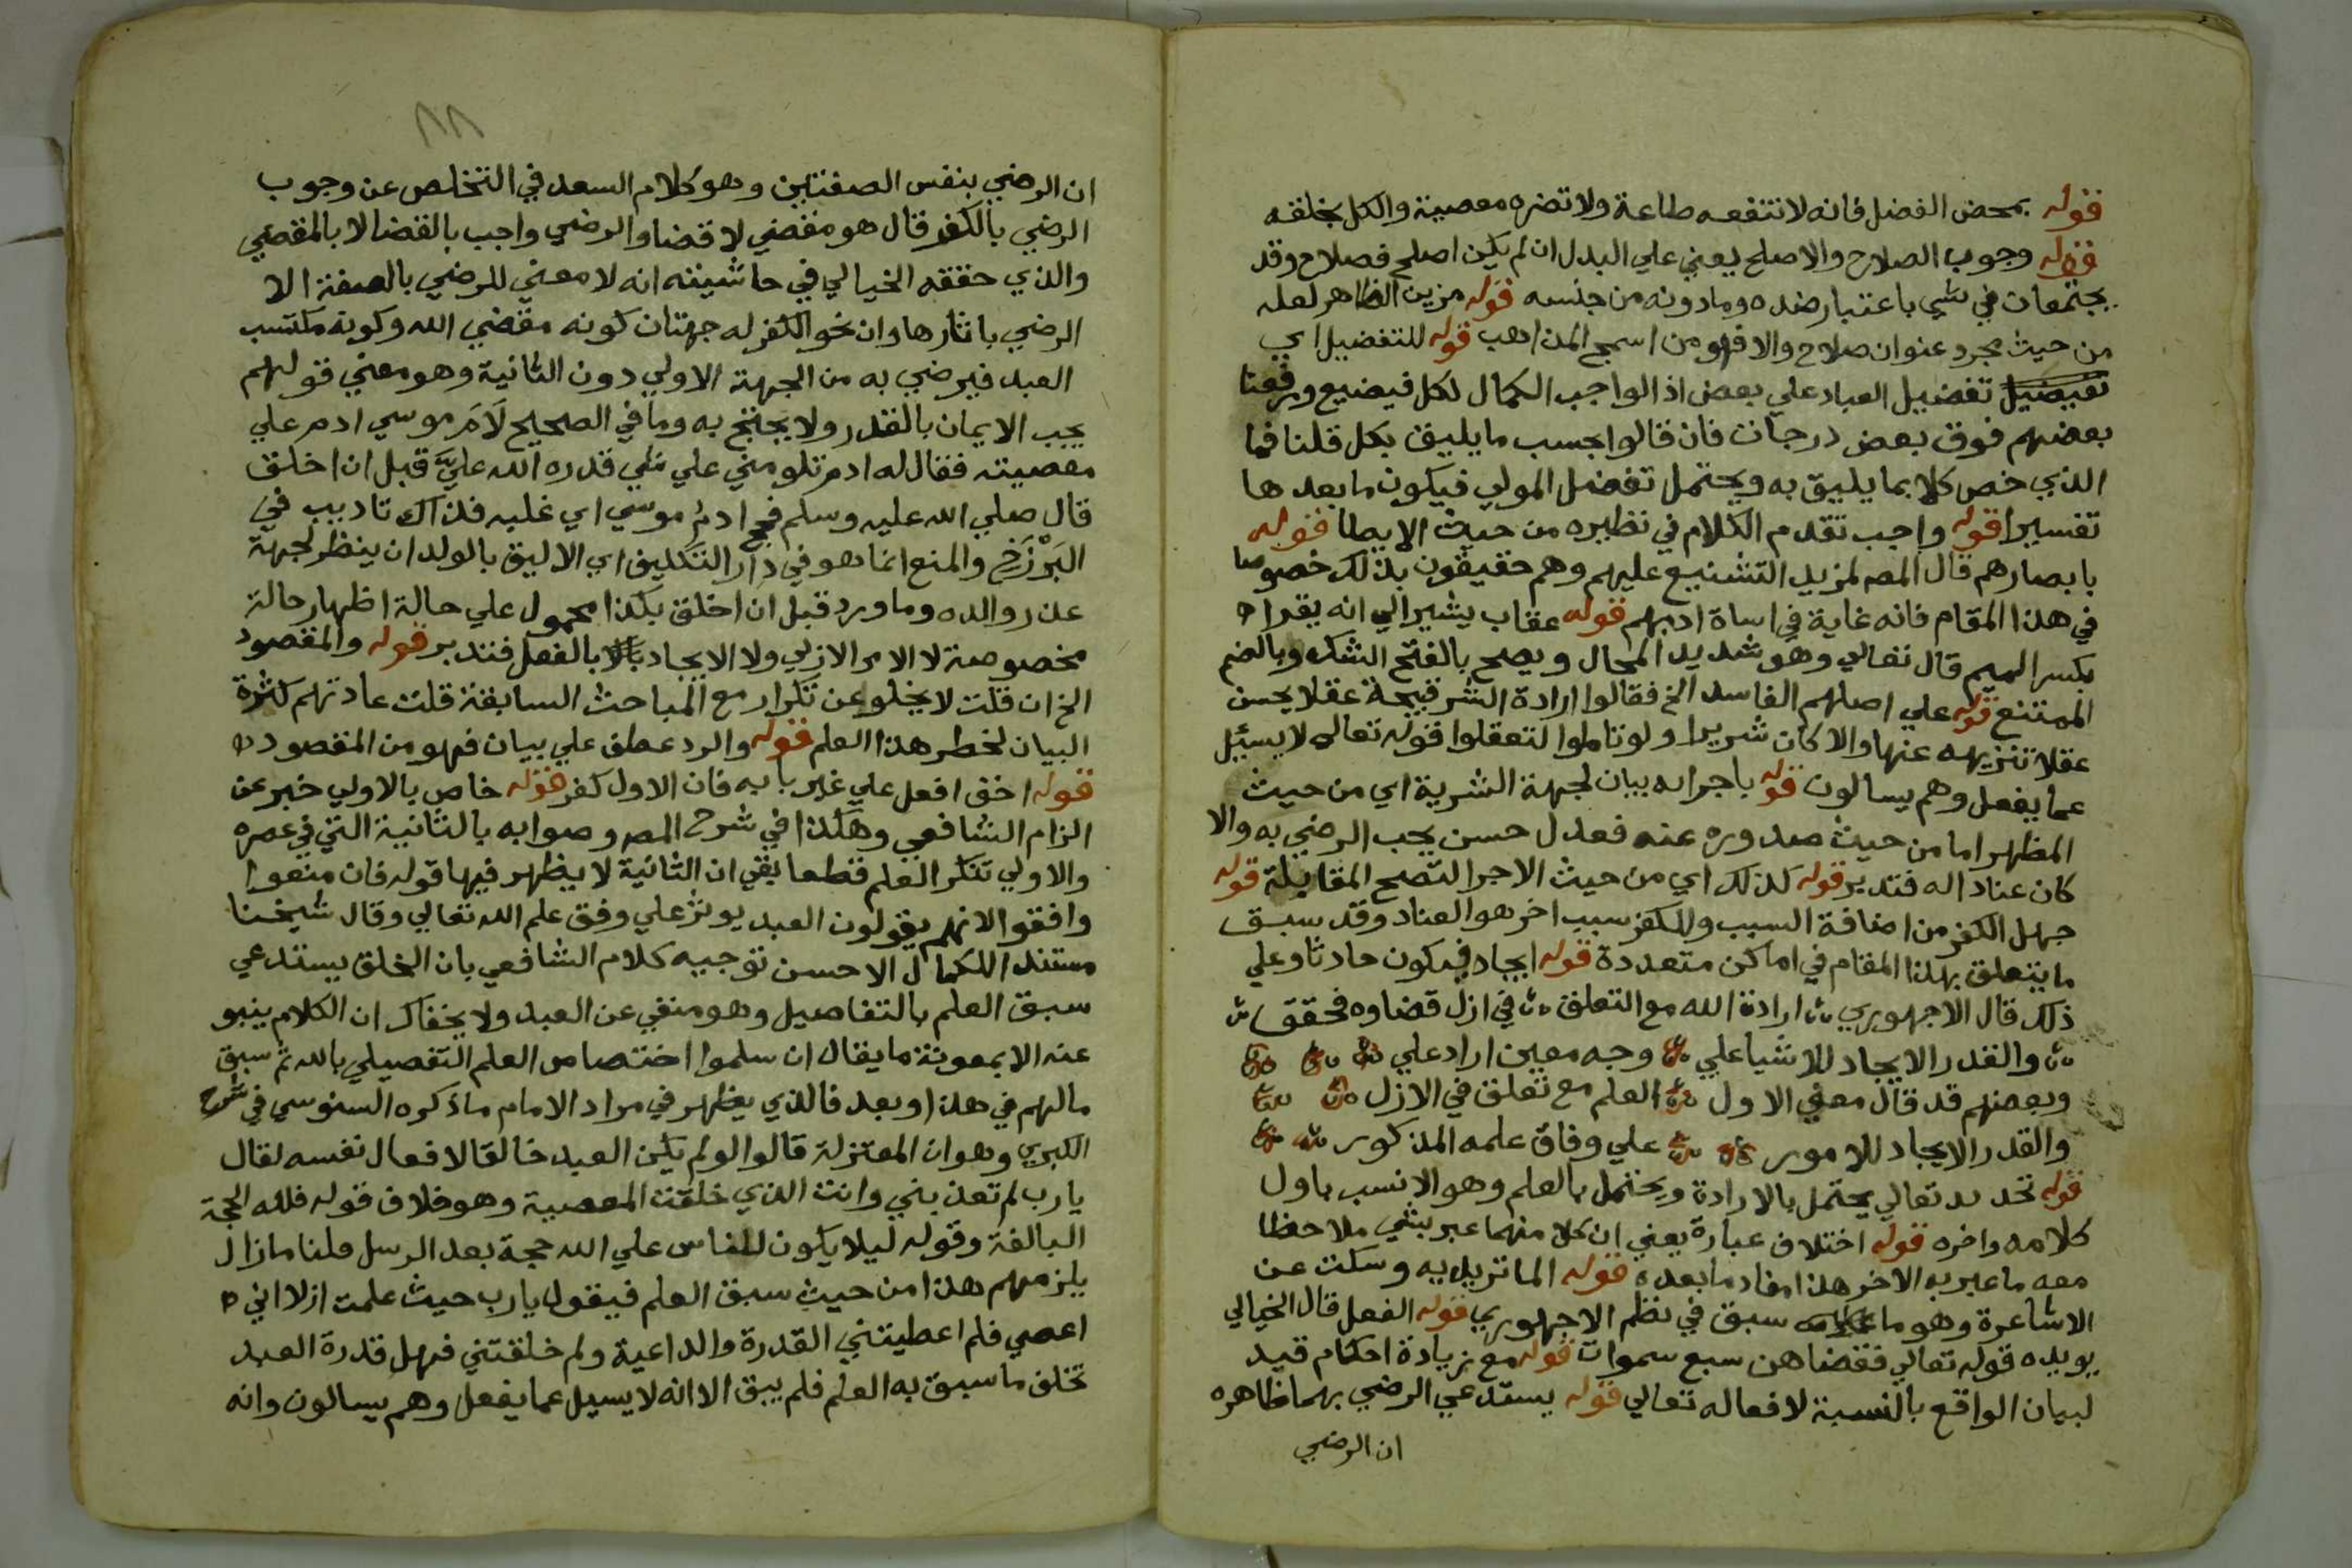 قوله بمحض الفضل فانه لا تنفعه طاعة ولا تضره معصية والكل بخلقه
قوله وجوب الصلاح والاصلح يعني علي البدل ان لم يكن اصلح فصلاح وقد
يجتمعات في شي باعتبار ضده وما دونه من جنسه قوله مزين الظاهر لعله
من حيث مجرد عنوان صلاح والا فهو من اسمج المذاهب قوله للتفضيل اي
تفضيل العباد علي بعض اذ الواجب الكمال لكل فيضيع ورفعنا
بعضهم فوق بعض درجات فان قالوا بحسب ما يليق بكل قلنا فما
الذي خص كلا بما يليق به ويحتمل تفضل المولي فيكون ما بعدها
تفسيرا قوله واجب تقدم الكلام في نظيره من حيث الايطا قوله
بابصارهم قال المصـ لمزيد التشنيع عليهم وهم حقيقون بذلك خصوصا
في هذا المقام فانه غاية في اساة ادبهم قوله عقاب يشير الي انه يقرا
بكسر الميم قال تعالي وهو شديد المحال ويصح بالفتح الشك وبالضم
الممتنع قوله علي اصلهم الفاسد الخ فقالوا ارادة الشر قبيحة عقلا يحسن
عقلا تنزيهه عنها والا كان شريرا ولو تاملوا لتعقلوا قوله تعالي لا يسئل
عما يفعل وهم يسالون قوله باجرايه بيان لجهة الشرية اي من حيث
المظهر اما من حيث صدوره عنه فعدل حسن يجب الرضي به والا
كان عنادا له فتدبر قوله كذلك اي من حيث الاجرا لتصح المقابلة قوله
جهل الكفر من اضافة السبب وللكفر سبب اخر هو العناد وقد سبق
ما يتعلق بهذا المقام في اماكن متعددة قوله ايجاد فيكون حادثا وعلي
ذلك قال الاجهوري ارادة الله مع التعلق في ازل قضاوه فحقق
والقدر الايجاد للاشيا علي وجه معين اراد علي
وبعضهم قد قال معني الاول العلم مع تعلق في الازل
والقدر الايجاد للامور علي وفاق علمه المذكور
قوله تحديد تعالي يحتمل بالارادة ويحتمل بالعلم وهو الانسب باول
كلامه واخره قوله اختلاف عبارة يعني ان كلا منهما عبر بشي ملاحظا
معه ما عبر به الاخر هذا مفاد ما بعده قوله الماتريديه وسكت عن
الاشاعرة وهو ما سبق في نظم الاجهوري قوله الفعل قال الخيالي
يويده قوله تعالي فقضاهن سبع سموات قوله مع زيادة احكام قيد
لبيان الواقع بالنسبة لافعاله تعالي قوله يستدعي الرضي بهما ظاهره
ان الرضي
٨٨
ان الرضي بنفس الصفتين وهو كلام السعد في التخلص عن وجوب
الرضي بالكفر قال هو مقضي لا قضا والرضي واجب بالقضا لا بالمقضي
والذي حققه الخيالي في حاشيته انه لا معني للرضي بالصفة الا
الرضي باثارها وان نحو الكفر له جهتان كونه مقضي الله وكونه مكتسب
العبد فيرضي به من الجهة الاولي دون الثانية وهو معني قولهم
يجب الايمان بالقدر ولا يحتج به وما في الصحيح لَامَ موسي ادم علي
معصيته فقال له ادم تلومني علي شي قدره الله عليَّ قبل ان اخلق
قال صلي الله عليه وسلم فحج ادمُ موسي اي غلبه فذاك تاديب في
البَرْزَخِ والمنع انما هو في دار التكليف اي الاليق بالولد ان ينظر لجهة
عذر والده وما ورد قبل ان اخلق بكذا محمول علي حالة اظهار حالة
مخصوصة لا الامر الازلي ولا الايجاد بالفعل فتدبر قوله والمقصود
الخ ان قلت لا يخلو عن تكرار مع المباحث السابقة قلت عادتهم كثرة
البيان لخطر هذا العلم قوله والرد عطف علي بيان فهو من المقصود
قوله اخف افعل علي غير بابه فان الاول كفر قوله خاص بالاولي خبر عن
الزام الشافعي وهكذا في شرح المصـ وصوابه بالثانية التي في عصره
والاولي تنكر العلم قطعا بقي ان الثانية لا يظهر فيها قوله فان منعوا
وافقوا لانهم يقولون العبد يوثر علي وفق علم الله تعالي وقال شيخنا
مستندا للكمال الاحسن توجيه كلام الشافعي بان الخلق يستدعي
سبق العلم بالتفاصيل وهو منفي عن العبد ولا يخفاك ان الكلام ينبو
عنه الا بمعونة ما يقال ان سلموا اختصاص العلم التفصيلي بالله ثم سبق
مالهم في هذا وبعد فالذي يظهر في مراد الامام ما ذكره السنوسي في شرح
الكبري وهو ان المعتزلة قالوا لو لم يكن العبد خالقا لافعال نفسه لقال
يا رب لم تعذبني وانت الذي خلقت المعصية وهو خلاف قوله فلله الحجة
البالغة وقوله ليلا يكون للناس علي الله حجة بعد الرسل قلنا ما زال
يلزمهم هذا من حيث سبق العلم فيقول يا رب حيث علمت ازلا اني
اعصي فلم اعطيتني القدرة والداعية ولم خلقتني فهل قدرة العبد
تخلف ما سبق به العلم فلم يبق الا انه لا يسيل عما يفعل وهم يسالون وانه